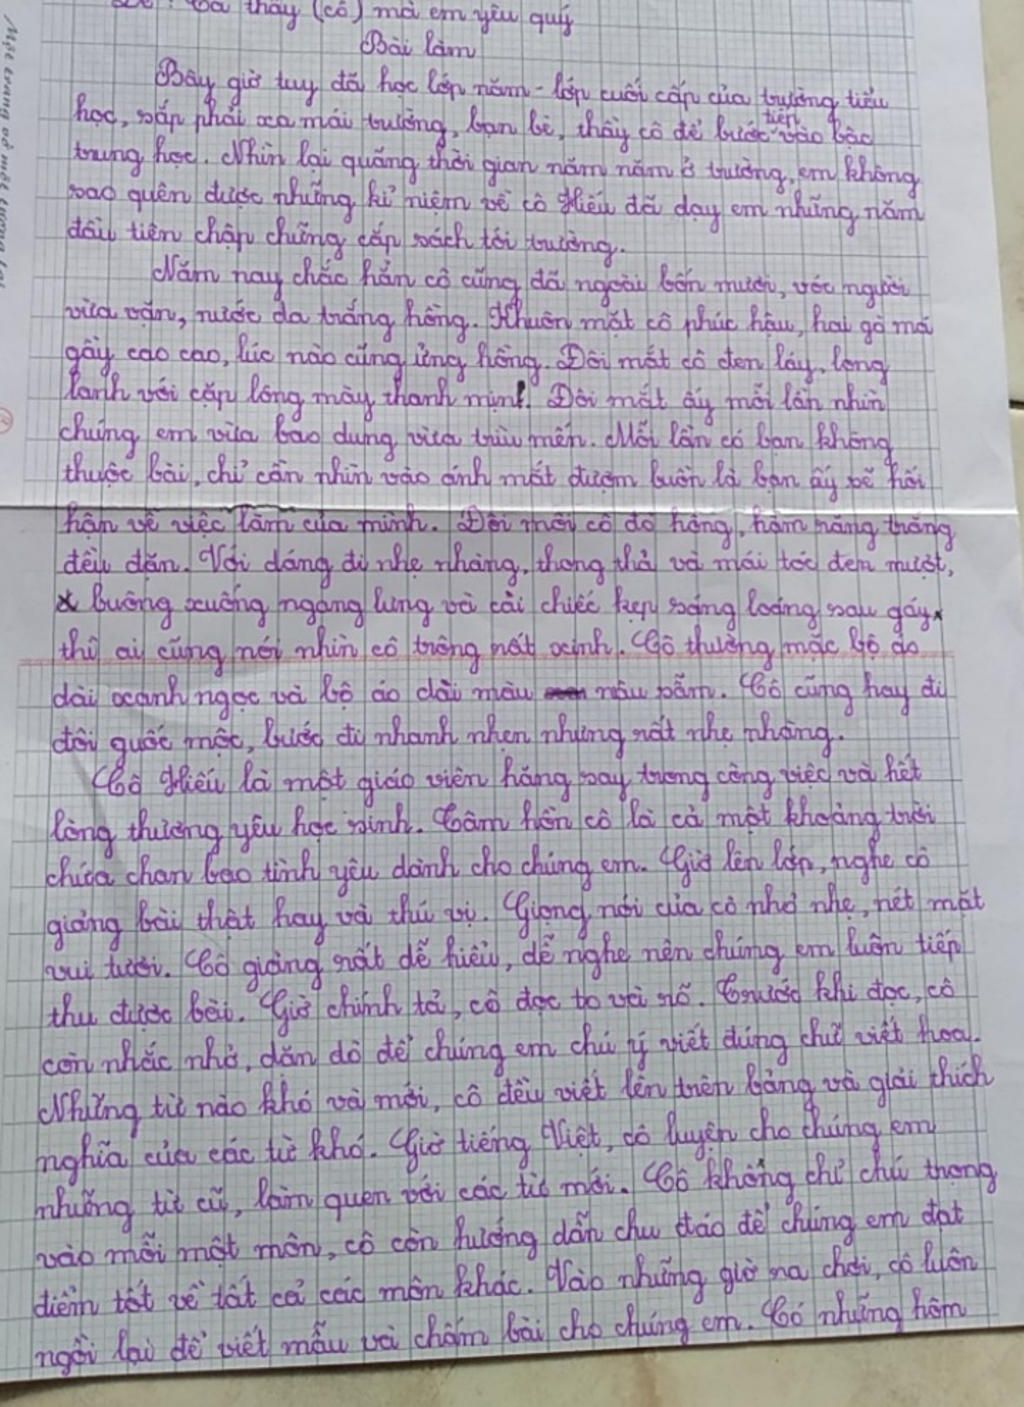 tả thầy (cô) mà em yêu quý
Bài làm
Bây giờ tuy đã học lớp năm - lớp cuối cấp của trường tiểu
học, sắp phải xa mái trường, bạn bè, thầy cô để bước tiếp vào bậc
trung học. Nhìn lại quãng thời gian năm năm ở trường, em không
sao quên được những kỉ niệm về cô Hiếu đã dạy em những năm
đầu tiên chập chững cắp sách tới trường.
Năm nay chắc hẳn cô cũng đã ngoài bốn mươi, vóc người
vừa vặn, nước da trắng hồng. Khuôn mặt cô phúc hậu, hai gò má
gầy cao cao, lúc nào cũng ửng hồng. Đôi mắt cô đen láy, long
lanh với cặp lông mày thanh mịn. Đôi mắt ấy mỗi lần nhìn
chúng em vừa bao dung vừa trìu mến. Mỗi lần có bạn không
thuộc bài, chỉ cần nhìn vào ánh mắt đượm buồn là bạn ấy sẽ hối
hận về việc làm của mình. Đôi môi cô đỏ hồng, hàm răng trắng
đều đặn. Với dáng đi nhẹ nhàng, thong thả và mái tóc đen mượt,
buông xuống ngang lưng và cài chiếc kẹp sáng loáng sau gáy
thì ai cũng nói nhìn cô trông rất xinh. Cô thường mặc bộ áo
dài xanh ngọc và bộ áo dài màu nâu sẫm. Cô cũng hay đi
đôi guốc mộc, bước đi nhanh nhẹn nhưng rất nhẹ nhàng.
Cô Hiếu là một giáo viên hăng say trong công việc và hết
lòng thương yêu học sinh. Tâm hồn cô là cả một khoảng trời
chứa chan bao tình yêu dành cho chúng em. Giờ lên lớp, nghe cô
giảng bài thật hay và thú vị. Giọng nói của cô nhỏ nhẹ, nét mặt
vui tươi. Cô giảng rất dễ hiểu, dễ nghe nên chúng em luôn tiếp
thu được bài. Giờ chính tả, cô đọc to và rõ. Trước khi đọc, cô
còn nhắc nhở, dặn dò để chúng em chú ý viết đúng chữ viết hoa.
Những từ nào khó và mới, cô đều viết lên trên bảng và giải thích
nghĩa của các từ khó. Giờ tiếng Việt, cô luyện cho chúng em
những từ cũ, làm quen với các từ mới. Cô không chỉ chú trọng
vào mỗi một môn, cô còn hướng dẫn chu đáo để chúng em đạt
điểm tốt về tất cả các môn khác. Vào những giờ ra chơi, cô luôn
ngồi lại để viết mẫu và chấm bài cho chúng em. Có những hôm